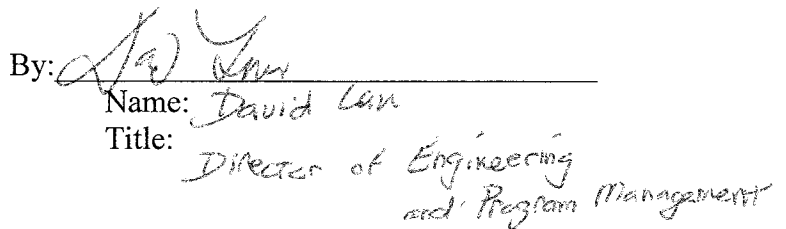 By:
Name: David Lan
Title:
Director of Engineering
and Program Management